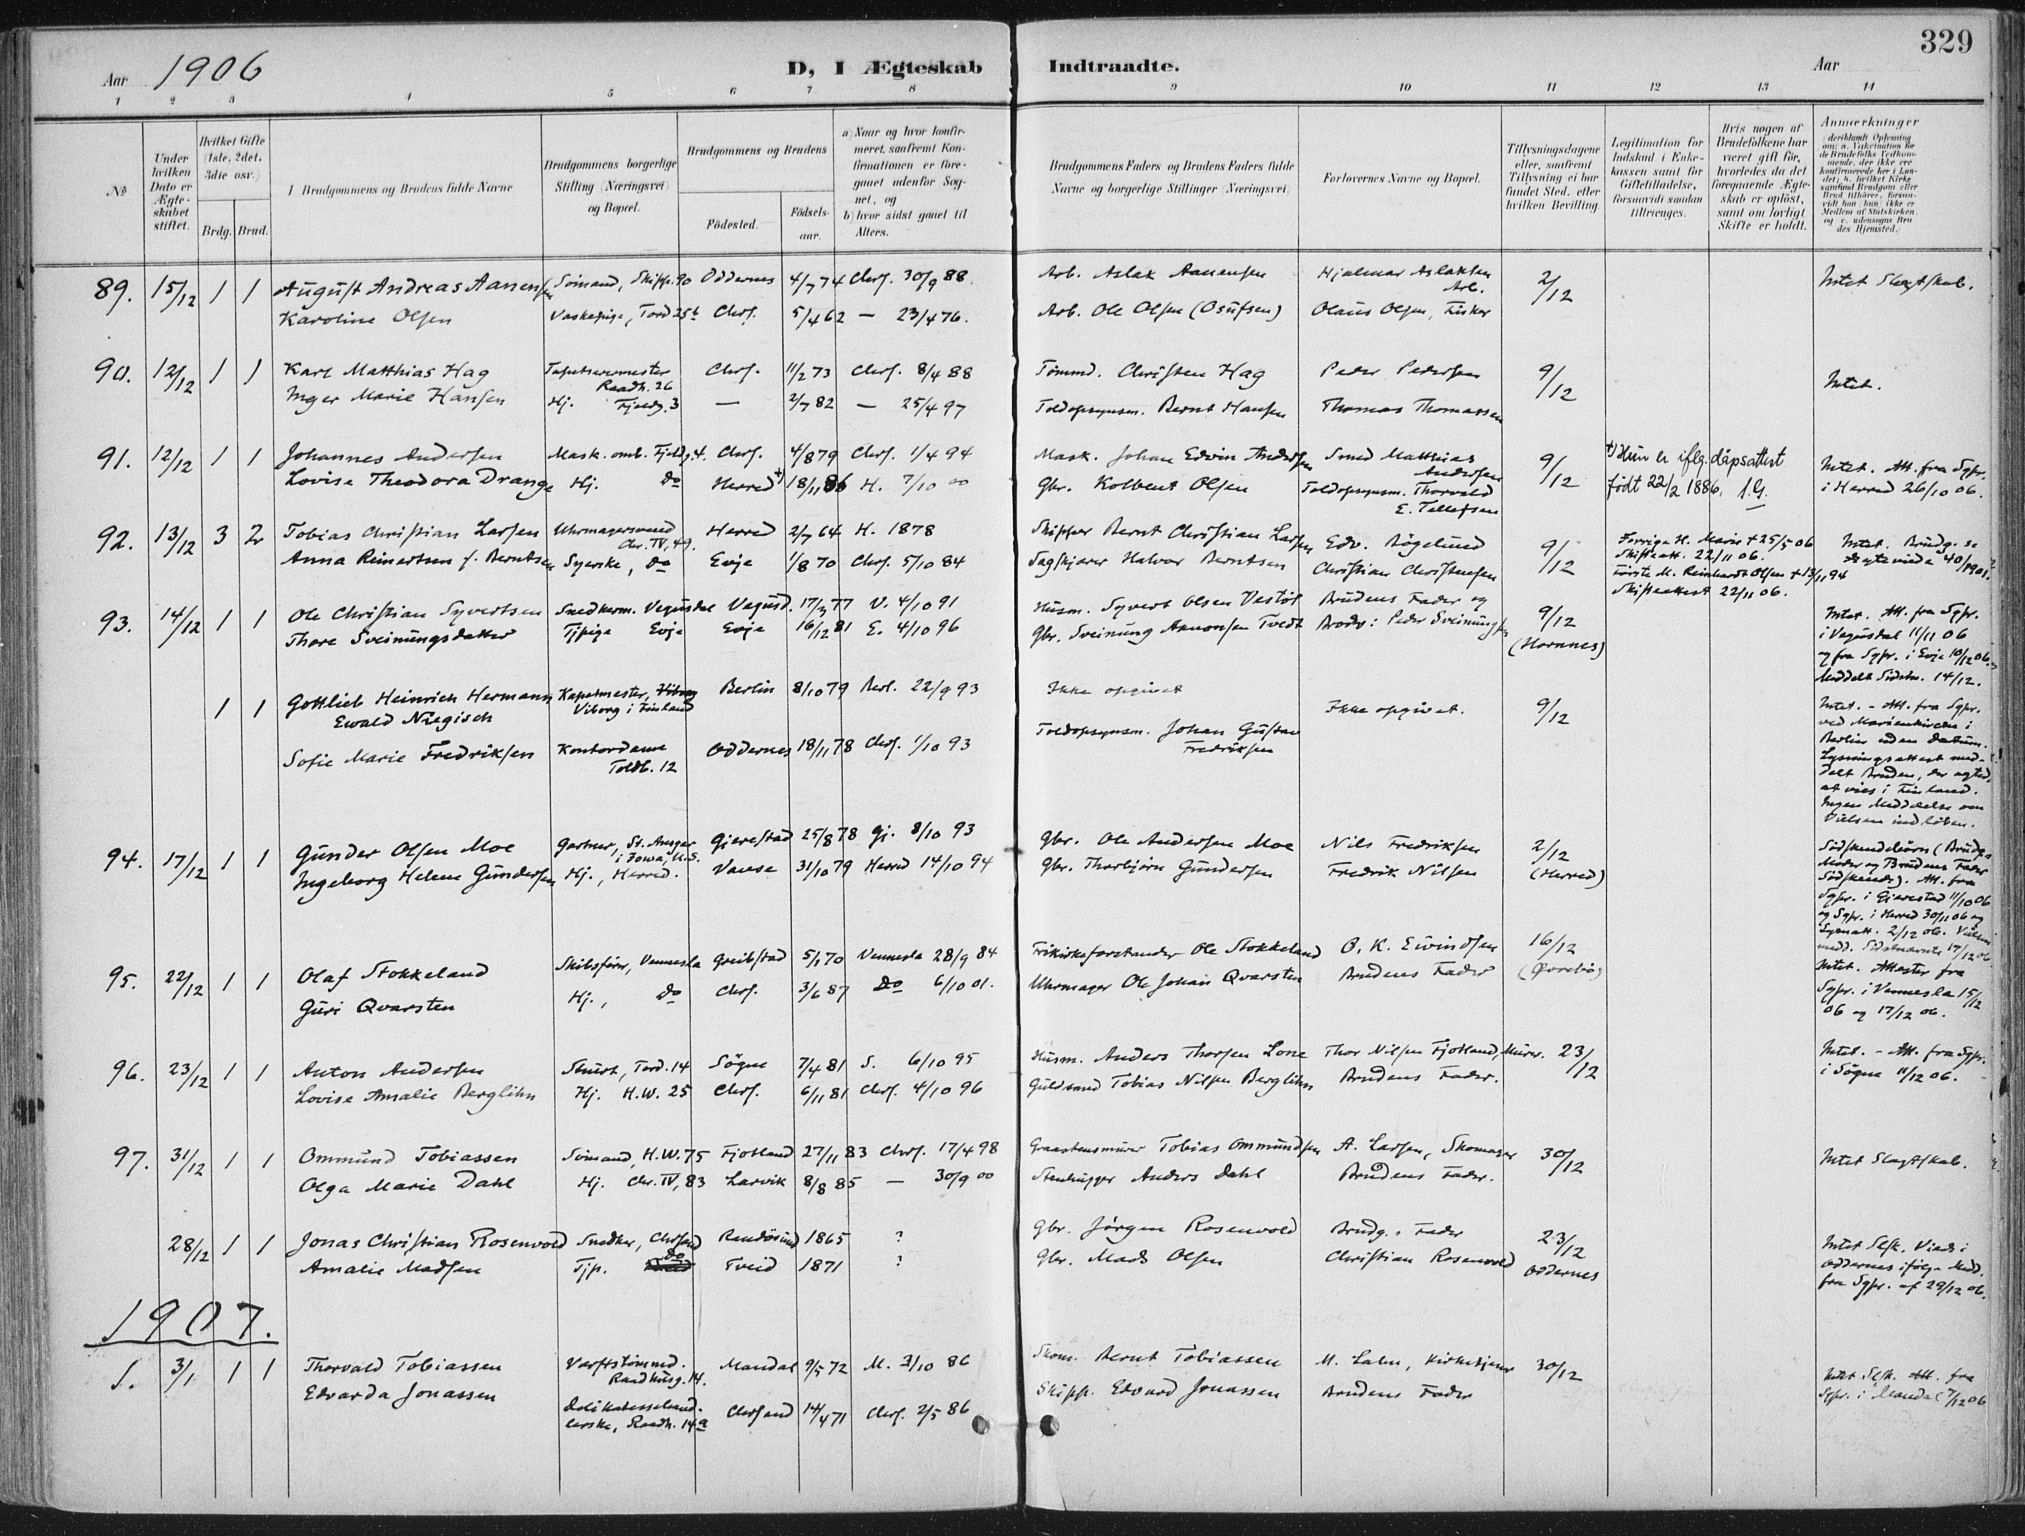 Aar 1906
D, I Ægteskab Indtraadte.
Aar
329
1 2 3 4 5 6 7 8 9 10 11 12 13 14
No
Under hvilken Dato er Ægteskabet stiftet.
Hvilket Gifte (1ste, 2det, 3die osv.)
Brdg. Brud.
I Brudgommens og Brudens fulde Navne
Brudgommens borgerlige Stilling (Næringsvei) og Bopæl.
Brudgommens og Brudens
Fødested.
Fødselsaar.
a) Naar og hvor konfirmeret, saafremt Konfirmationen er foregaaet udenfor Sognet, og
b) hvor sidst gaaet til Alters.
Brudgommens Faders og Brudens Faders fulde Navne og borgerlige Stillinger (Næringsvei)
Forlovernes Navne og Bopæl.
Tillysningsdagene eller, saafremt Tillysning ei har fundet Sted, efter hvilken Bevilling
Legitimation for Indskud i Enkekassen samt for Giftetilladelse, forsaavidt saadan tiltrænges.
Hvis nogen af Brudefolkene har været gift før, hvorledes da det foregaaende Ægteskab er opløst, samt om lovligt Skifte er holdt.
Anmærkninger
89. 15/12 1 1 August Andreas Aanensen Sömand, Skippg. 90 Oddernes 4/7 74 Chrs. 30/9 88. Arb. Aslak Aanensen Hjalmar Aslaksen Arb. 2/12 Intet Slægtskab.
Karoline Olsen Vaskepige, Tord 25b Chrs. 5/4 62 — 23/4 76. Arb. Ole Olsen (Osufsen) Olaus Olsen, Fisker
90. 12/12 1 1 Karl Matthias Hag Tapetserermester Raadh. 26 Chrs. 11/2 73 Chrs. 8/4 88 Tømmd. Christen Hag Peder Pedersen 9/12 Intet.
Inger Marie Hansen Hj. Fjeldg. 3 — 2/7 82 — 25/4 97 Toldopsynsm. Bernt Hansen Thomas Thomassen
91. 12/12 1 1 Johannes Andersen Mask. omb. Fjeldg. 4. Chrs. 4/8 79 Chrs. 1/4 94 Mask. Johan Edvin Andersen Smed Matthias Andersen 9/12 +) Hun er iflg. dåpsattest Intet. Att. fra Sgpr.
Lovise Theodora Drange Hj. Do Herred +) 18/11 86 H. 7/10 00 Gbr. Kolbent Olsen Toldopsynsm. Thorvald E. Tellefsen født 22/2 1886. i Herred 26/10 06.
92. 13/12 3 2 Tobias Christian Larsen Uhrmagersvend Chr. IV, 49. Herred 2/7 64 H. 1878 Skipper Bernt Christian Larsen Edv. Bögelund 9/12 Forrige H. Marie + 25/5 06 Intet. Brudg. se
Skifteatt. 22/11 06. Ægteviede 40/1901.
Anna Reinertsen f. Berntsen Syerske, Do Evje 1/8 70 Chrs. 5/10 84 Sagskjærer Halvor Berntsen Christian Christensen Förste M. Reinhardt Olsen + 13/11 94
Skifteattest 22/11 06.
93. 14/12 1 1 Ole Christian Syvertsen Snedkerm. Vegusdal Vegusd. 17/3 77 V. 4/10 91 Husm. Syvert Olsen Vestöl Brudens Fader og 9/12 Intet. Att. fra Sgpr.
Thore Sveinungsdatter Tjpige Evje Evje 16/12 81 E. 4/10 96 Gbr. Sveinung Aanonsen Tvedt Brodr: Peder Sveinungsen (Hornnes) i Vegusdal 11/11 06
og fra Sgpr. i Evje 10/12 06.
Meddelt Sidstn. 14/12.
1 1 Gottlieb Heinrich Hermann Kapelmester, Viborg Berlin 8/10 79 Berl. 22/9 93 Ikke opgivet Ikke opgivet. 9/12 Intet. - Att. fra Sgpr.
Ewald Nregisch Viborg i Finland ved Marienkirche i
Berlin uden Datum.
Sofie Marie Fredriksen Kontordame Toldb. 12 Oddernes 18/11 78 Chrs. 1/10 93 Toldopsynsm. Johan Gustav Fredriksen Lysningsattest meddelt Bruden, der agted.
at vies i Finland.
Ingen Meddelelse om
Vielsen indløben.
94. 17/12 1 1 Gunder Olsen Moe Gartner, St. Ansgar i Iowa, U.S. Gjerestad 25/8 78 Gj. 8/10 93 Gbr. Ole Andersen Moe Nils Fredriksen 2/12 Södskendebörn (Brudgs
Ingeborg Helene Gundersen Hj., Herred. Vanse 31/10 79 Herred 14/10 94 Gbr. Thorbjörn Gundersen Fredrik Nilsen (Herred) Moder og Brudens Fader
Södskende). Att. fra
Sgpr. i Gjerestad 11/10 06
og Sgpr. i Herred 30/11 06 og
Lysnatt. 2/12 06.
medd. Sidstnævnte 17/12 06
95. 22/12 1 1 Olaf Stokkeland Skibsförer, Vennesla Greibstad 5/1 70 Vennesla 28/9 84 Frikirkeforstander Ole Stokkeland O. K. Eivindsen 16/12 Intet. Attester fra
Guri Qvarsten Hj., Do Chrs. 3/6 87 Do 6/10 01. Uhrmager Ole Johan Qvarsten Brudens Fader (Øvrebö) Sgpr. i Vennesla 15/12
06 og 17/12 06.
96. 23/12 1 1 Anton Andersen Stuert, Tord. 14 Sögne 7/4 81 S. 6/10 95 Husm. Anders Thorsen Lone Thor Nilsen Fjotland, Murer. 23/12 Intet. - Att. fra Sgpr.
Lovise Amalie Berglihn Hj. H.W. 25 Chrs. 6/11 81 Chrs. 4/10 96 Guldsmed Tobias Nilsen Berglihn Brudens Fader. i Sögne 11/12 06.
97. 31/12 1 1 Ommund Tobiassen Sömand, H.W. 75 Fjotland 27/11 83 Chrs. 17/4 98 Graastensmurer Tobias Ommundsen A. Larsen, Skomager 30/12 Intet Slægtskab.
Olga Marie Dahl Hj. Chr. IV, 83 Larvik 8/8 85 — 30/9 00 Stenhugger Anders Dahl Brudens Fader.
28/12 1 1 Jonas Christian Rosenvold Snedker, Chrsand Randösund 1865 ? Gbr. Jörgen Rosenvold Brudg.s Fader 23/12 Intet Slsk. Viede i
Amalie Madsen Tjp. Do Tveid 1871 ? Gbr. Mads Olsen Christian Rosenvold Oddernes Oddernes ifölge Medd.
fra Sgpr. af 29/12 06.
1907.
1. 3/1 1 1 Thorvald Tobiassen Værftstømmd. Raadhusg. 14. Mandal 9/5 72 M. 3/10 86 Skom. Bernt Tobiassen M. Lahn, Kirketjener 30/12 Intet Slsk. Att. fra
Edvarda Jonassen Delikatessehandlerske, Raadh. 14a Chrsand 14/4 71 Chrs. 2/5 86 Skipp. Edvard Jonassen Brudens Fader Sgpr. i Mandal 7/12 06